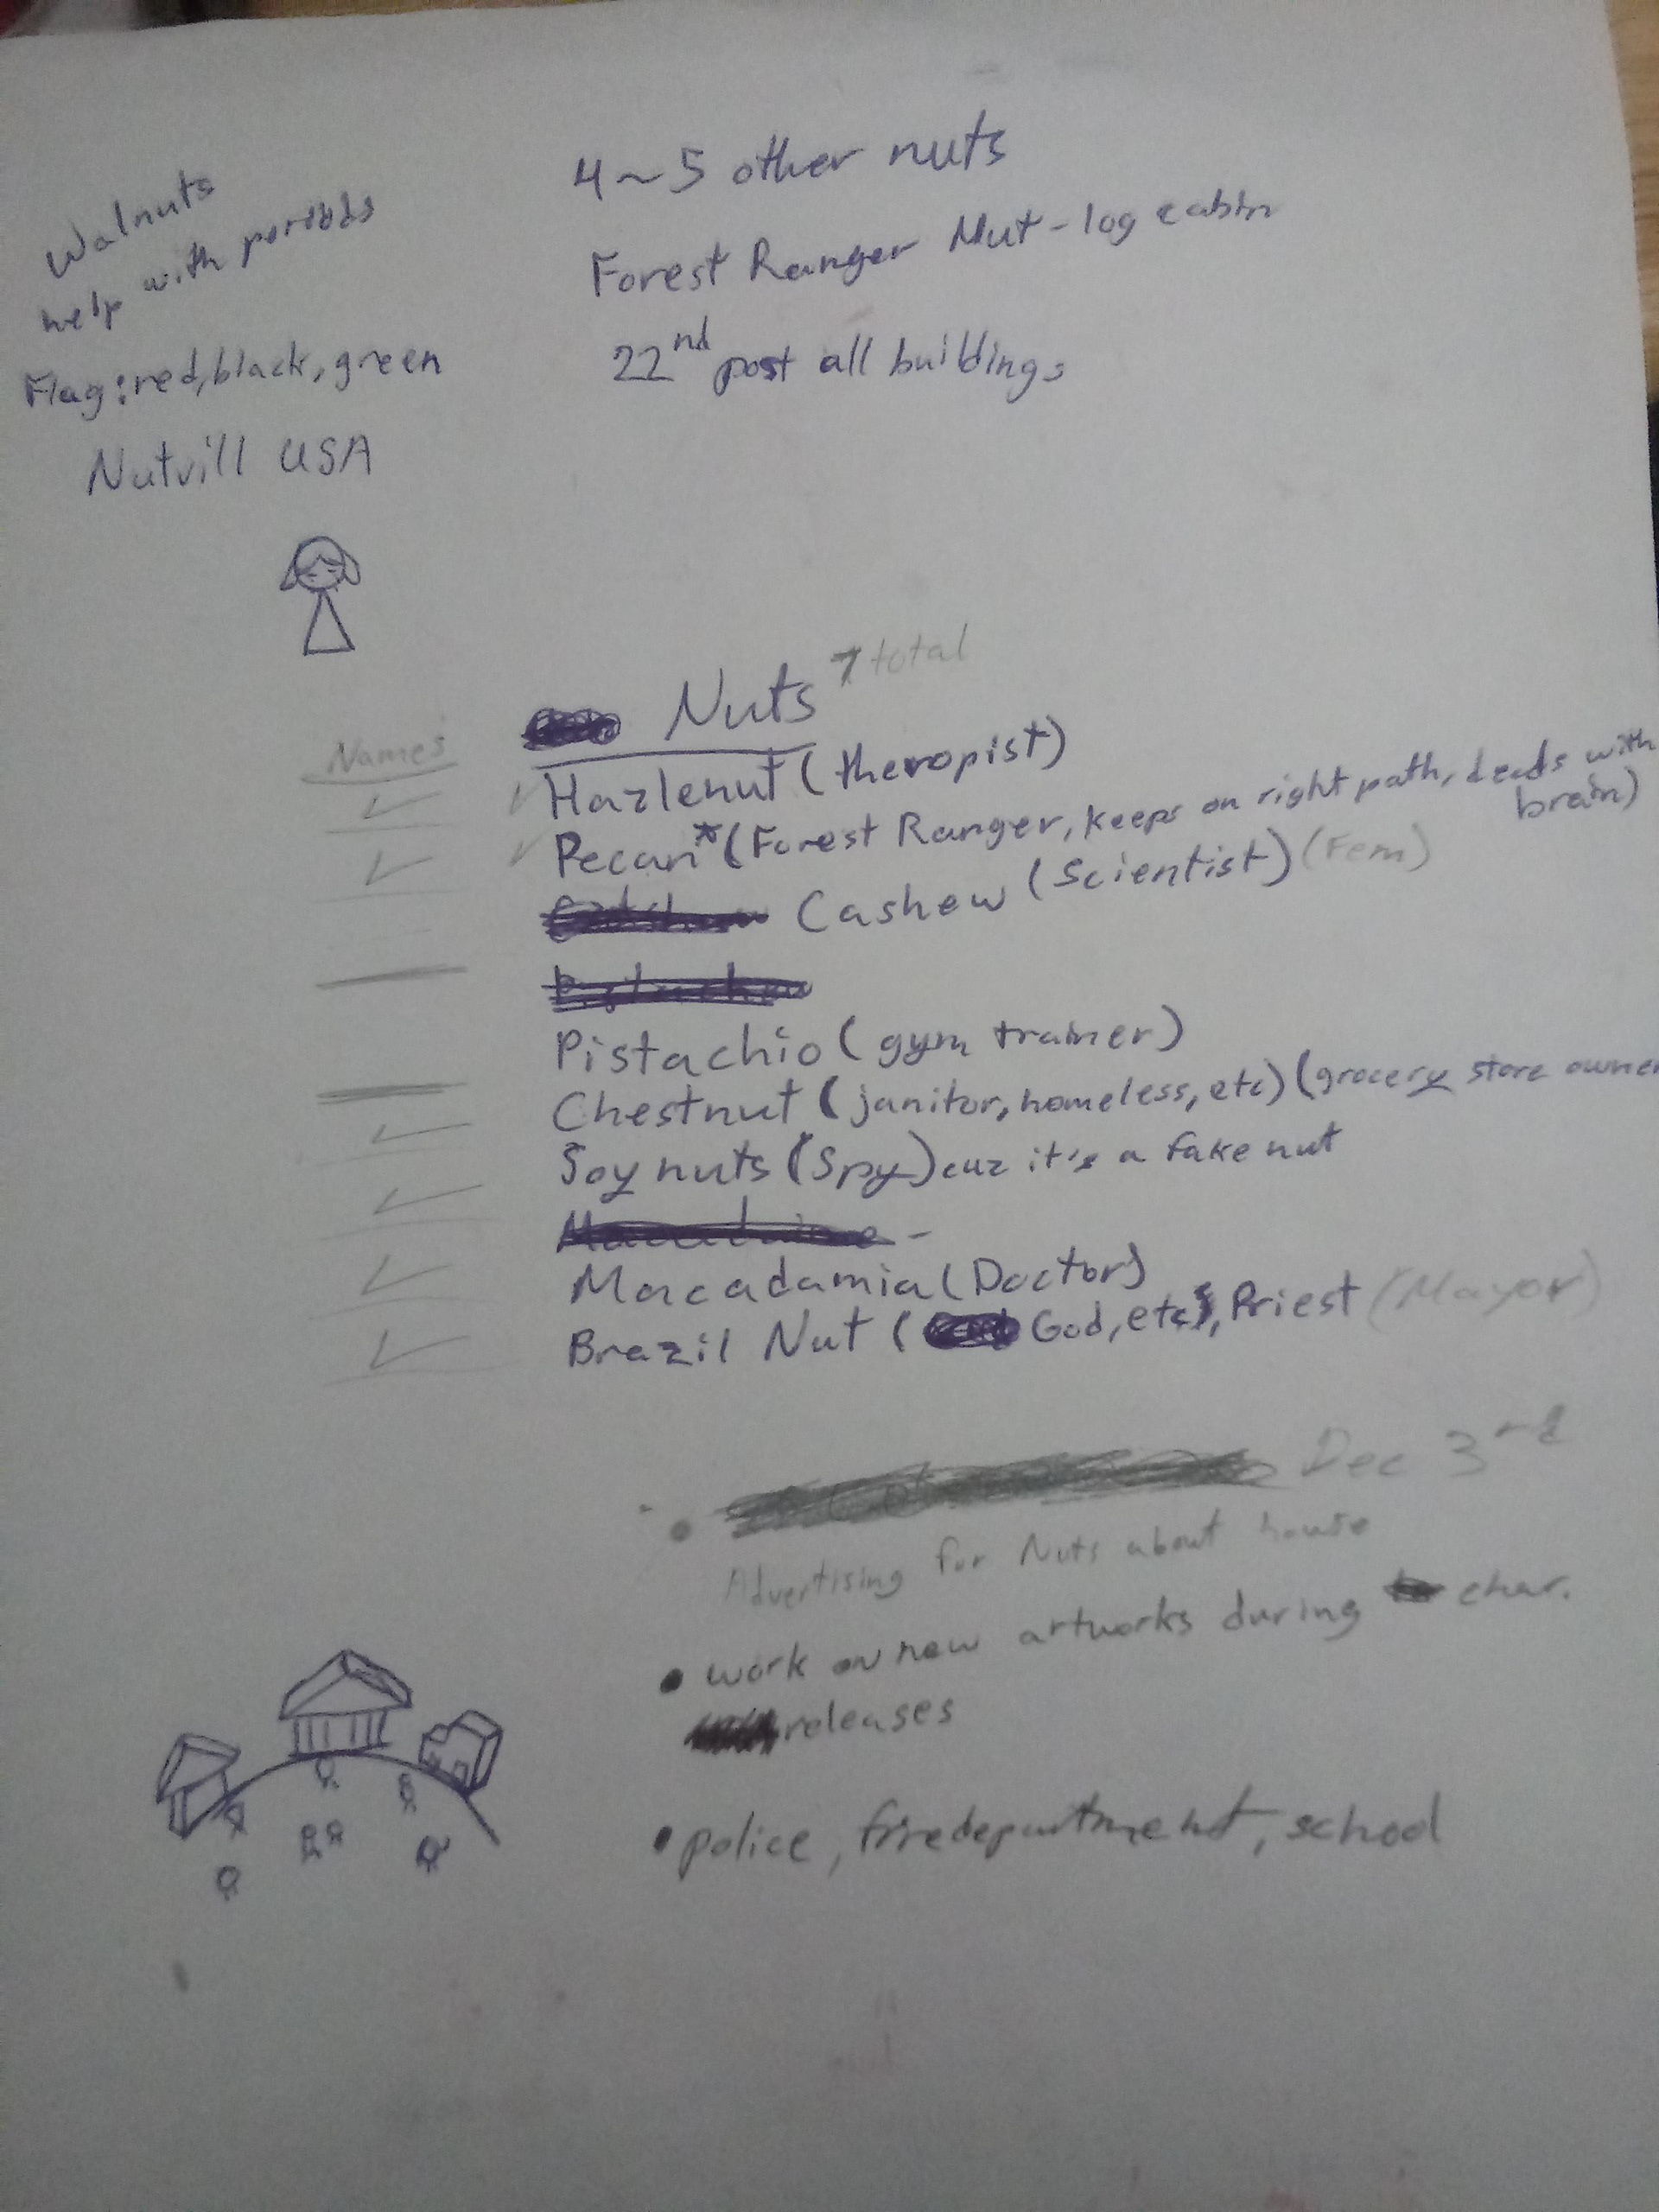 Walnuts
help with periods
Flag: red, black, green
Nutvill USA
4~5 other nuts
Forest Ranger Nut - log cabin
22nd post all buildings
Names
Nuts 7 total
Hazlenut (theropist)
Pecan* (Forest Ranger, keeps on right path, deads with
brain)
Cashew (Scientist) (Fem)
Pistachio (gym trainer)
Chestnut (janitor, homeless, etc) (grocery store owner
Soy nuts (Spy) cuz it's a fake nut
Macadamia (Doctor)
Brazil Nut ( God, etc), Priest (Mayor)
• Dec 3rd
Advertising for Nuts about house
• work on new artworks during char.
releases
• police, firedepartment, school